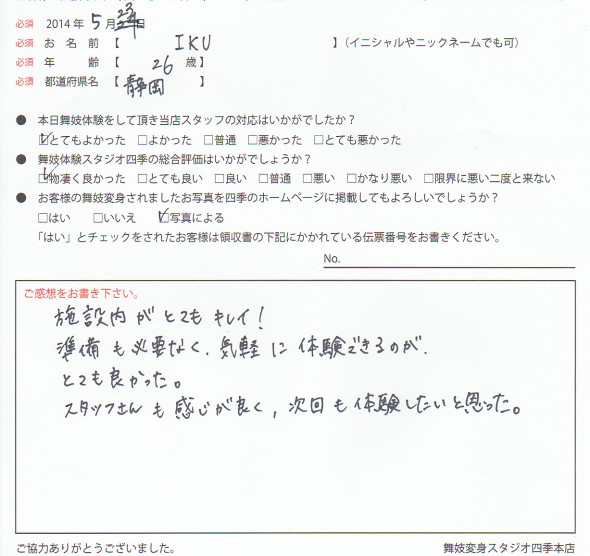 必須 2014年 5月23日
必須 お名前【 IKU 】(イニシャルやニックネームでも可)
必須 年齢【 26 歳】
必須 都道府県名【 静岡 】
● 本日舞妓体験をして頂き当店スタッフの対応はいかがでしたか?
☑とてもよかった □よかった □普通 □悪かった □とても悪かった
● 舞妓体験スタジオ四季の総合評価はいかがでしょうか?
☑物凄く良かった □とても良い □良い □普通 □悪い □かなり悪い □限界に悪い二度と来ない
● お客様の舞妓変身されましたお写真を四季のホームページに掲載してもよろしいでしょうか?
□はい □いいえ ☑写真による
「はい」とチェックをされたお客様は領収書の下記にかかれている伝票番号をお書きください。
No.
ご感想をお書き下さい。
施設内がとてもキレイ!
準備も必要なく、気軽に体験できるのが、
とても良かった。
スタッフさんも感じが良く,次回も体験したいと思った。
ご協力ありがとうございました。 舞妓変身スタジオ四季本店